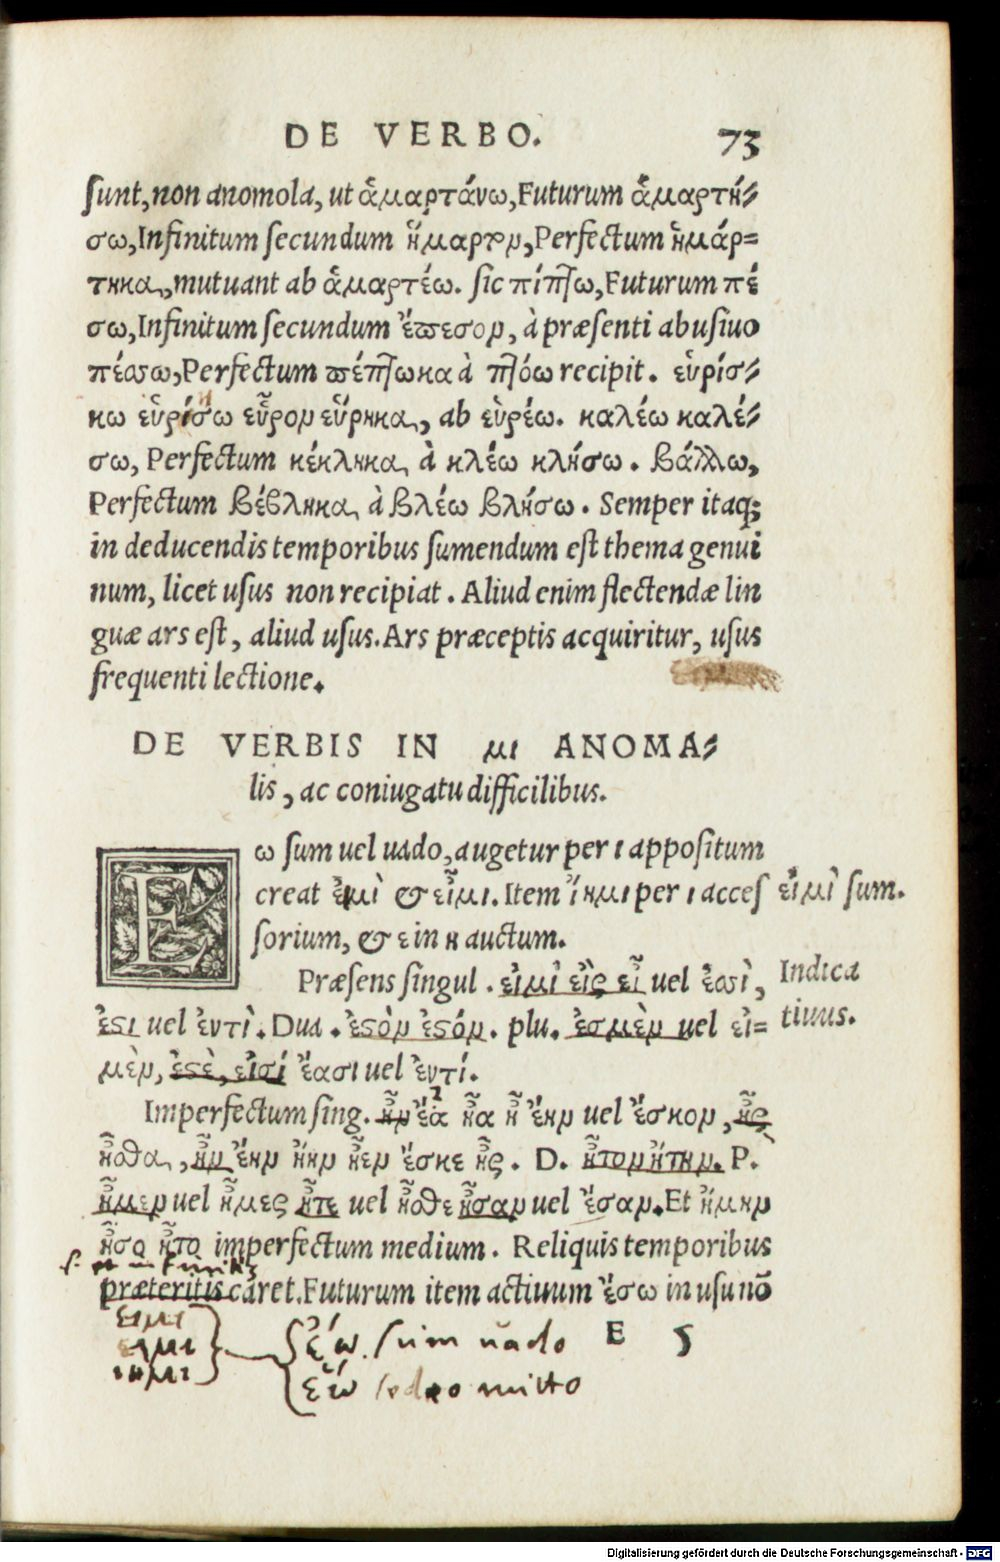 DE VERBO. 73
sunt, non anomola, ut ἁμαρτάνω, Futurum ἁμαρτή-
σω, Infinitum secundum ἥμαρτον, Perfectum ἡμάρ=
τηκα, mutuant ab ἁμαρτέω. sic πίπτω, Futurum πέ
σω, Infinitum secundum ἔπεσον, à præsenti abusiuo
πέσω, Perfectum πέπτωκα à πτόω recipit. εὑρίσ-
κω εὑρήσω εὗρον εὕρηκα, ab εὑρέω. καλέω καλέ-
σω, Perfectum κέκληκα, à κλέω κλήσω. βάλλω,
Perfectum βέβληκα, à βλέω βλήσω. Semper itaq;
in deducendis temporibus sumendum est thema genui
num, licet usus non recipiat. Aliud enim flectendæ lin
guæ ars est, aliud usus. Ars præceptis acquiritur, usus
frequenti lectione.
DE VERBIS IN μι ANOMA-
lis, ac coniugatu difficilibus.
Eω sum uel uado, augetur per ι appositum
creat εἰμὶ & εἶμι. Item ἵημι per ι acces
εἰμὶ sum.
sorium, & ε in η auctum.
Præsens singul. εἰμὶ εἲς εἶ uel ἐσσὶ,
Indica
tiuus.
ἐστι uel ἐντὶ. Dua. ἐστὸν ἐστόν. plu. ἐσμὲν uel εἰ=
μὲν, ἐστὲ, εἰσί ἔασι uel ἐντί.
Imperfectum sing. ἦν ἔα ἦα ἦ ἔην uel ἔσκον, ἦς
ἦσθα, ἦν ἔην ἤην ἦεν ἔσκε ἦς. D. ἦτον ἤτην. P.
ἦμεν uel ἦμες ἦτε uel ἦσθε ἦσαν uel ἔσαν. Et ἤμην
ἦσο ἦτο imperfectum medium. Reliquis temporibus
præteritis caret. Futurum item actiuum ἔσω in usu nō
E 5
ειμι
ειμι
ιημι
ἔω. sum uado
ἕω sedeo mitto